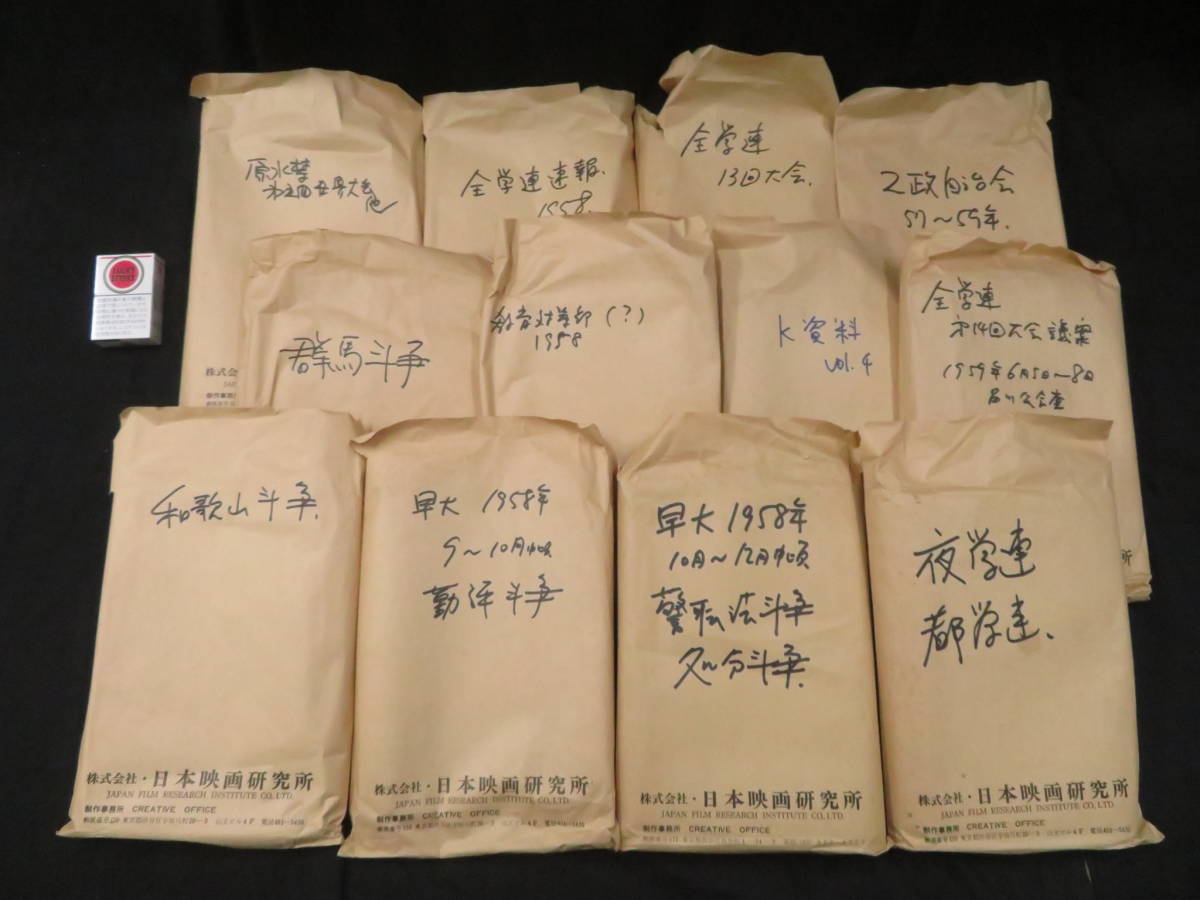 原水禁
第5回世界大会
他
全学連速報.
1958.
全学連
13回大会.
2政自治会
57～59年.
LUCKY
STRIKE
群馬斗争
(?)
1958
K資料
vol.4
全学連
第14回大会議案
1959年6月5日～8日
品川公会堂
株式会
JAP
制作事務所
和歌山斗争.
早大 1958年
9～10月中頃
勤評斗争
早大1958年
10月～12月中頃
警職法斗争
処分斗争.
夜学連
都学連.
所
株式会社・日本映画研究所
JAPAN FILM RESEARCH INSTITUTE CO., LTD.
制作事務所 CREATIVE OFFICE
株式会社・日本映画研究所
JAPAN FILM RESEARCH INSTITUTE CO., LTD.
制作事務所 CREATIVE OFFICE
株式会社・日本映画研究所
JAPAN FILM RESEARCH INSTITUTE CO., LTD.
制作事務所 CREATIVE OFFICE
株式会社・日本映画研究所
JAPAN FILM RESEARCH INSTITUTE CO., LTD.
制作事務所 CREATIVE OFFICE